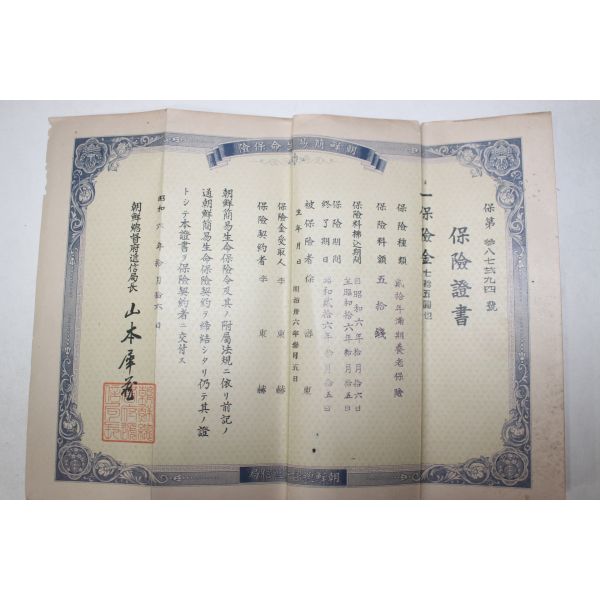 朝鮮簡易生命保険
保第 參八七貳九四 號
保險證書
一保險金 七拾五圓也
保險種類 貳拾年滿期養老保險
保險料額 五拾錢
保險料拂込期間 自昭和六年拾月拾六日
至昭和拾六年拾月拾五日
保險期間
終了期日 昭和貳拾六年拾月拾五日
被保險者 徐 東
生年月日 明治卅六年參月五日
保險金受取人 李 東 赫
保險契約者 李 東 赫
朝鮮簡易生命保險令及其ノ附屬法規ニ依リ前記ノ
通朝鮮簡易生命保險契約ヲ締結シタリ仍テ其ノ證
トシテ本證書ヲ保險契約者ニ交付ス
昭和 六 年 拾 月 拾六 日
朝鮮總督府遞信局長 山本犀藏
朝鮮總督府遞信局